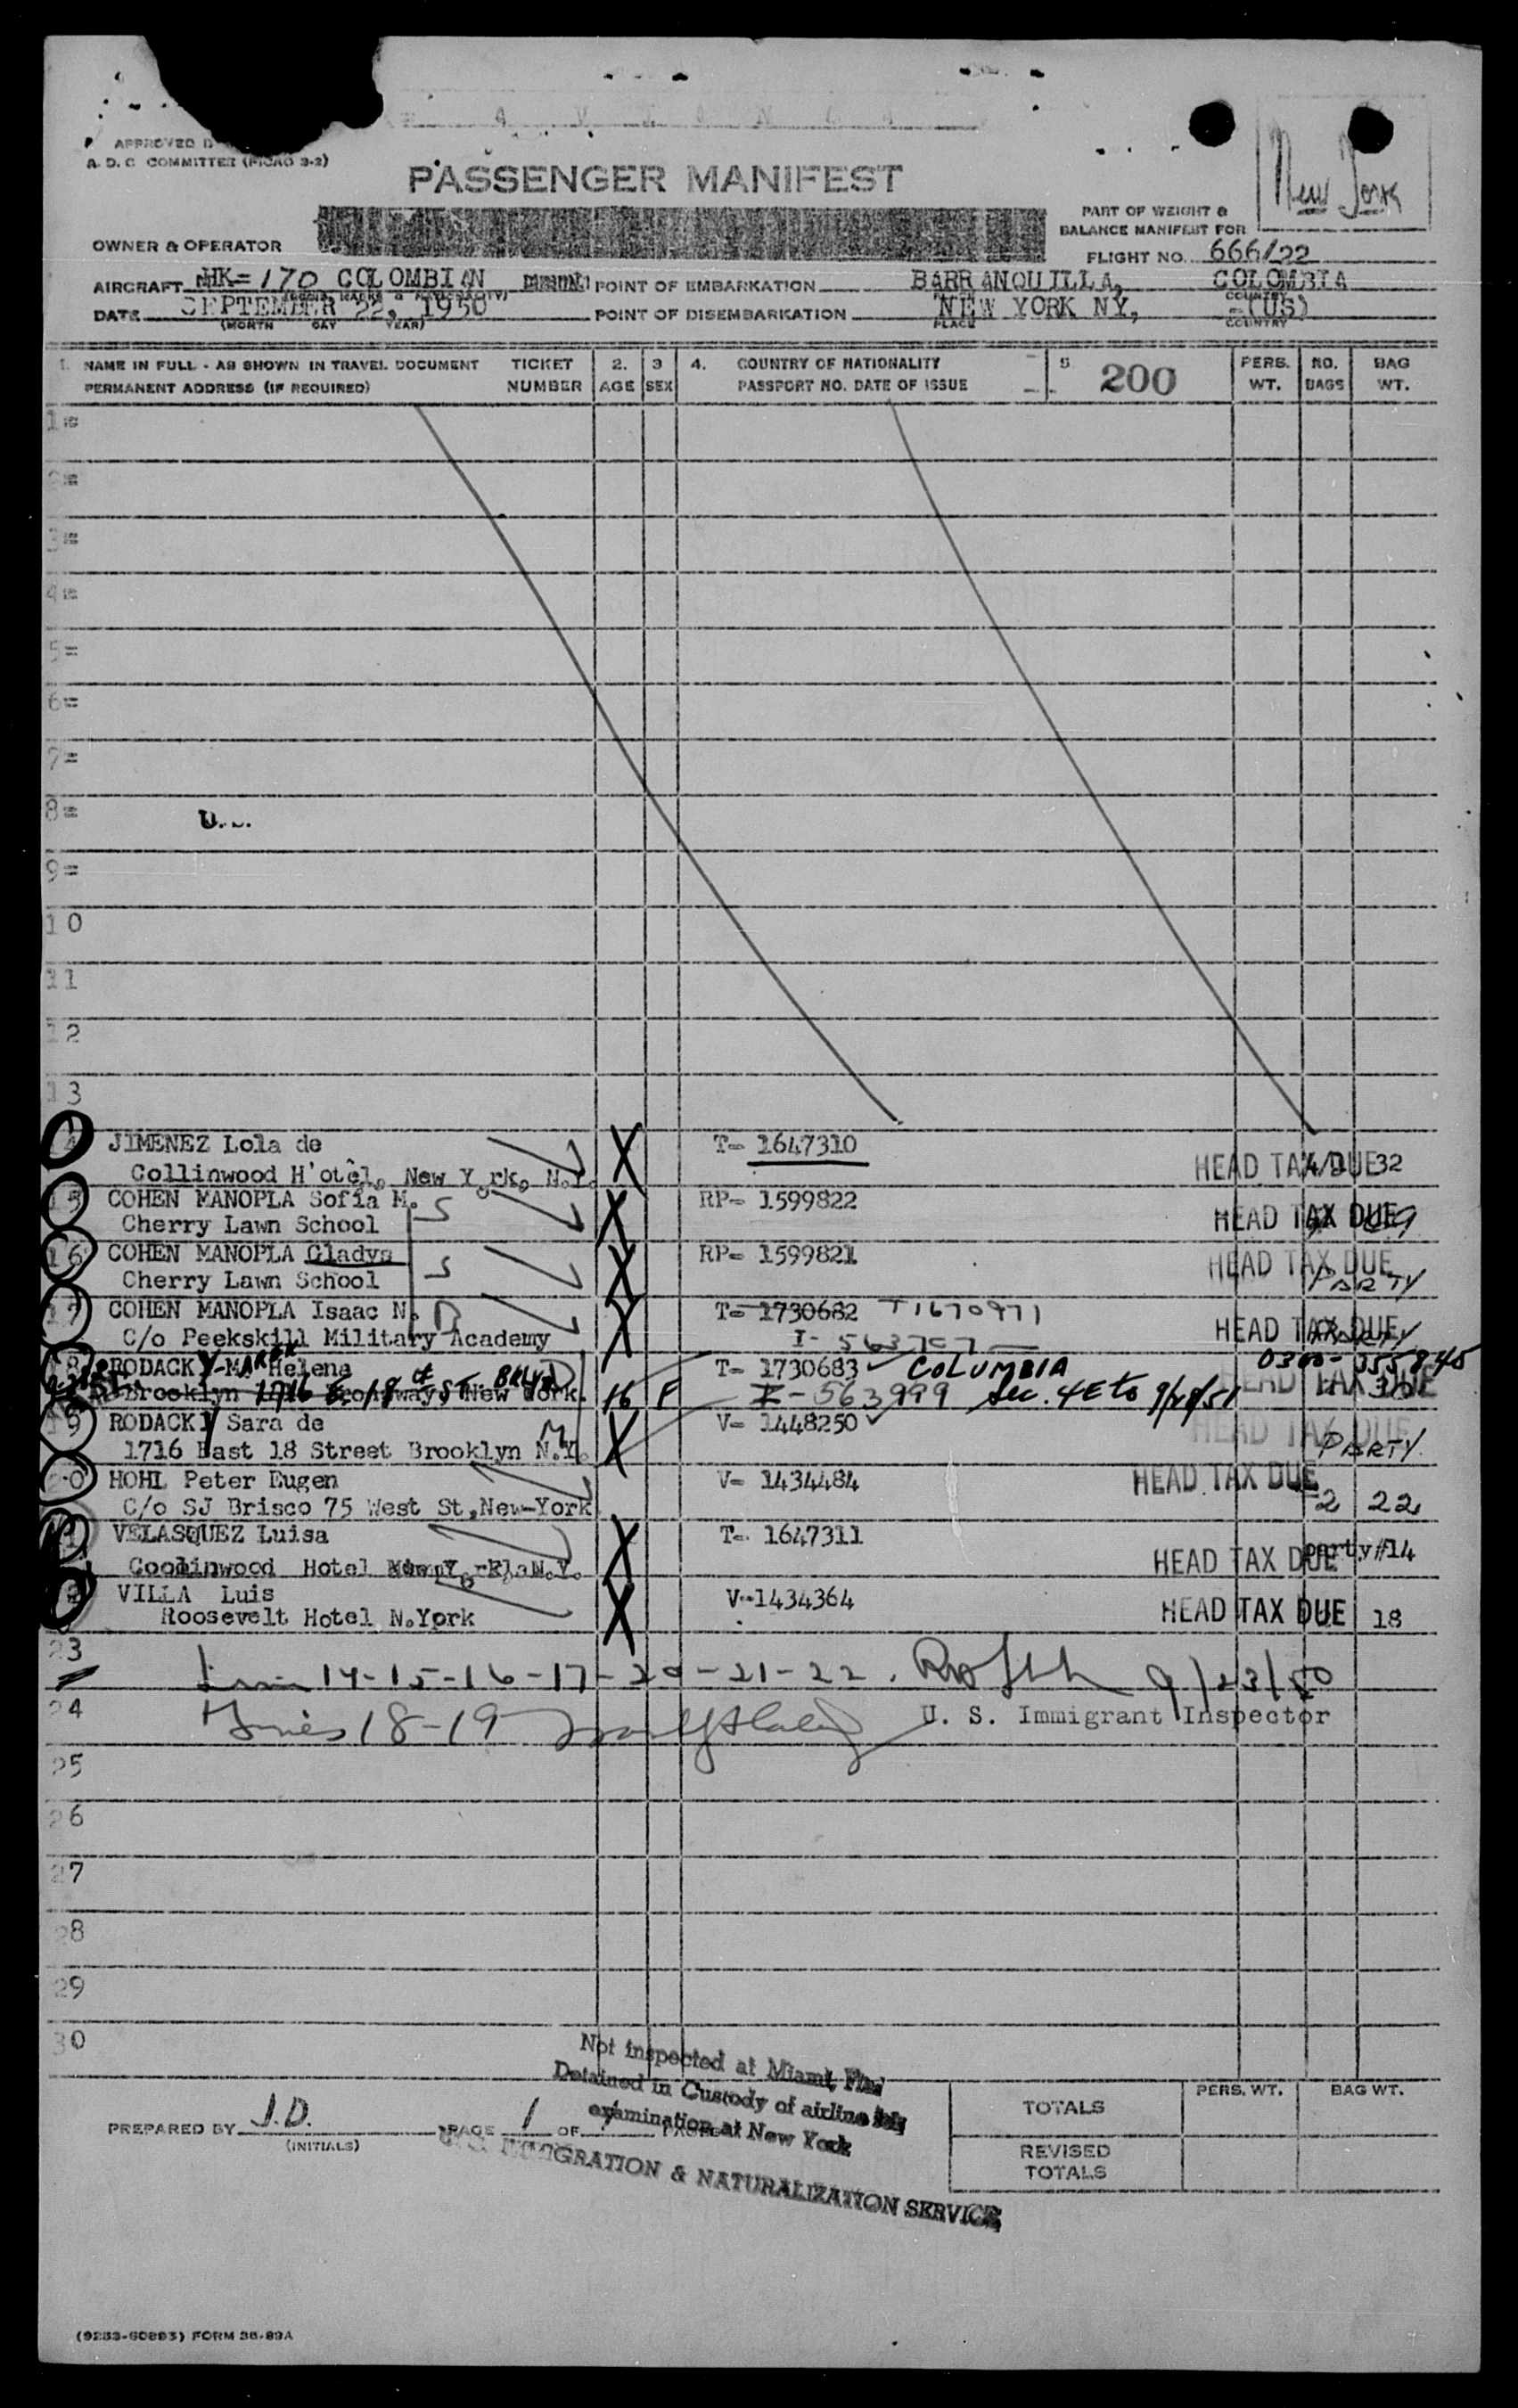 A V I A N C A
APPROVED
A. D. C COMMITTEE (PICAO 3-2)
PASSENGER MANIFEST
New York
PART OF WEIGHT &
BALANCE MANIFEST FOR
OWNER & OPERATOR
FLIGHT NO. 666/22
AIRCRAFT HK-170 COLOMBIAN POINT OF EMBARKATION BARRANQUILLA, COLOMBIA
DATE SEPTEMBER 22, 1950 POINT OF DISEMBARKATION NEW YORK NY, -(US)
(MONTH DAY YEAR) PLACE COUNTRY
1. NAME IN FULL - AS SHOWN IN TRAVEL DOCUMENT TICKET 2. 3 4. COUNTRY OF NATIONALITY 5 200 PERS. NO. BAG
PERMANENT ADDRESS (IF REQUIRED) NUMBER AGE SEX PASSPORT NO. DATE OF ISSUE WT. BAGS WT.
1=
2=
3=
4=
5=
6=
7=
8=
9=
10
11
12
13
14 JIMENEZ Lola de X T- 1647310
Collinwood H'otel, New York, N.Y. HEAD TAX DUE 32
15 COHEN MANOPLA Sofia M. S X RP- 1599822
Cherry Lawn School HEAD TAX DUE
16 COHEN MANOPLA Gladys S X RP- 1599821 HEAD TAX DUE
Cherry Lawn School PARTY
17 COHEN MANOPLA Isaac N. X T- 1730682 T1670971
C/o Peekskill Military Academy I- 563707 HEAD TAX DUE PARTY
18 RODACKY-MAREK Helena T- 1730683 COLUMBIA 0300-355845
Brooklyn 1716 E. 18 St. BKLYN New York. 16 F I-563999 Sec. 4E to 9/28/51 HEAD TAX DUE
19 RODACKY Sara de M X V- 1448250 HEAD TAX DUE
1716 East 18 Street Brooklyn N.Y. PARTY
20 HOHL Peter Eugen V- 1434484 HEAD TAX DUE
C/o SJ Brisco 75 West St,New-York 2 22
21 VELASQUEZ Luisa X T- 1647311 party #14
Coolinwood Hotel N.Y. HEAD TAX DUE
22 VILLA Luis X V-1434364
Roosevelt Hotel N.York HEAD TAX DUE 18
23
14-15-16-17-20-21-22. 9/23/50
24 Lines 18-19 U. S. Immigrant Inspector
25
26
27
28
29
30
Not inspected at Miami, Fla
Detained in Custody of airline
examination at New York
U.S. IMMIGRATION & NATURALIZATION SERVICE
PREPARED BY J.D. PAGE 1 OF
(INITIALS)
PERS. WT. BAG WT.
TOTALS
REVISED
TOTALS
(9233-60893) FORM 36-89A